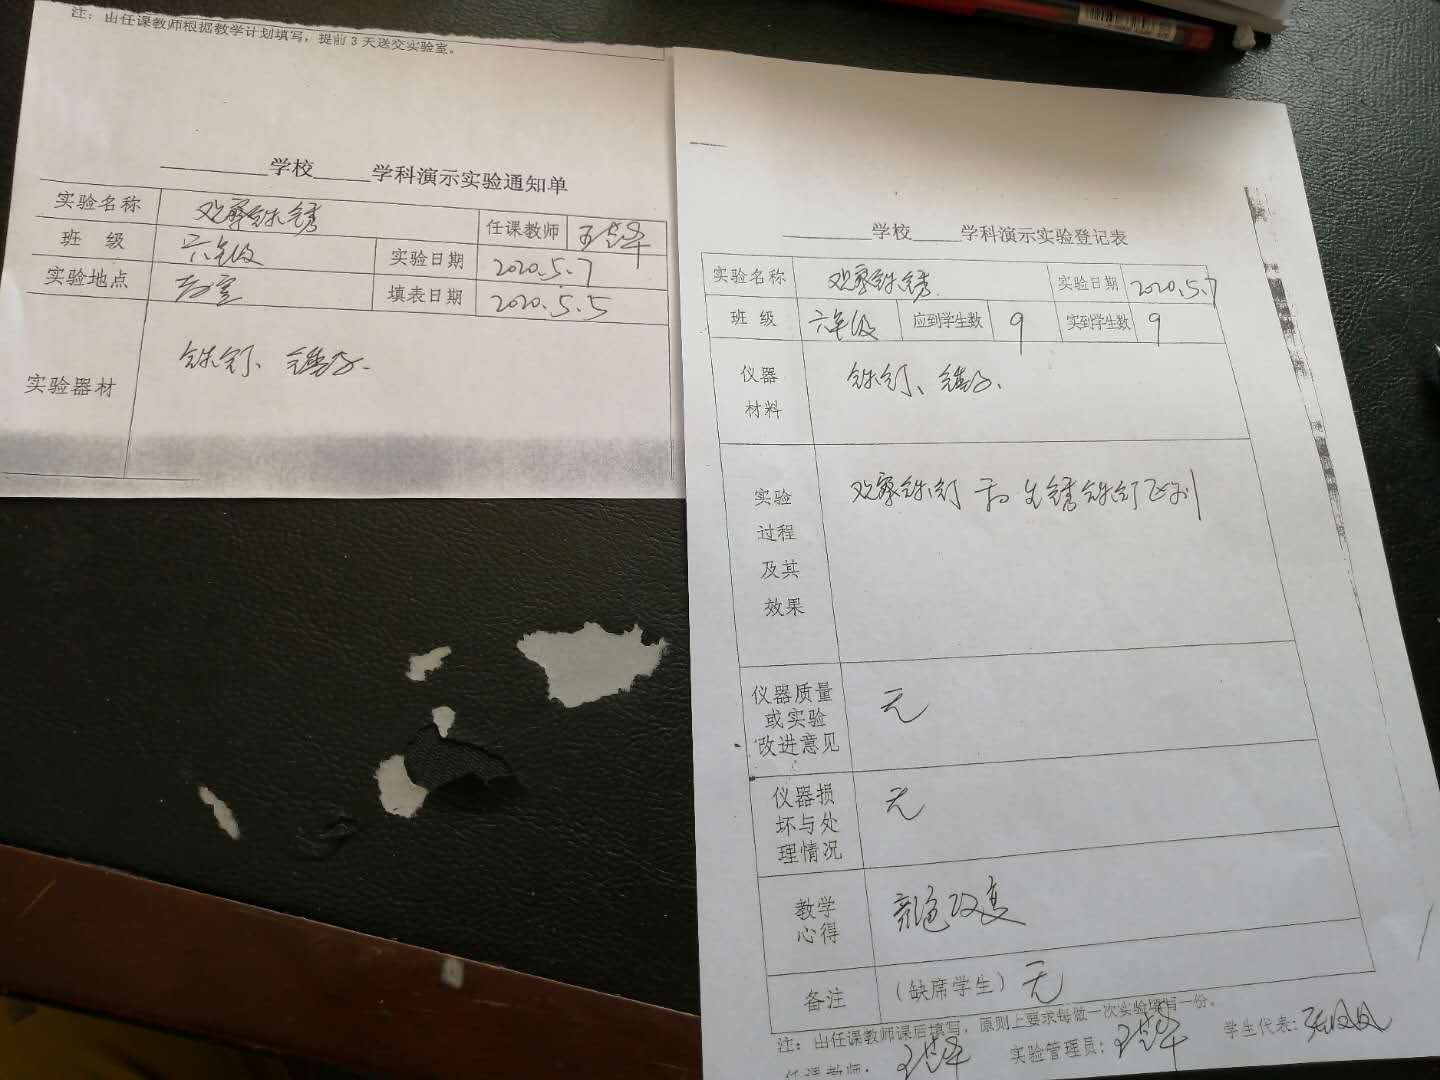 注：由任课教师根据教学计划填写，提前3天送交实验室。
学校 学科演示实验通知单
实验名称 观察铁锈 任课教师
班 级 六年级 实验日期 2020.5.7
实验地点 教室 填表日期 2020.5.5
实验器材 铁钉、
学校 学科演示实验登记表
实验名称 观察铁锈 实验日期 2020.5.7
班 级 六年级 应到学生数 9 实到学生数 9
仪器
材料
铁钉、
实验
过程
及其
效果
观察铁钉和生锈铁钉区别
仪器质量
或实验
改进意见
无
仪器损
坏与处
理情况
无
教学
心得
颜色改变
备注 （缺席学生）无
注：由任课教师课后填写，原则上要求每做一次实验填写一份。
任课教师： 实验管理员： 学生代表：